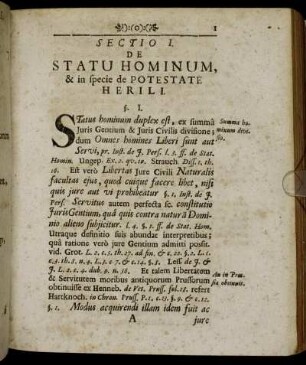 1
SECTIO I.
DE
STATU HOMINUM,
& in specie de POTESTATE
HERILI.
§. I.
STatus hominum duplex est, ex summâ
Juris Gentium & Juris Civilis divisione;
dum Omnes homines Liberi sunt aut
Servi, pr. Inst. de J. Pers. l. 3. ff. de Stat.
Homin. Ungep. Ex. 2. qv. 10. Strauch. Diss. 2. th.
Est verò Libertas Jure Civili Naturalis
facultas ejus, quod cuique facere libet, nisi
quis jure aut vi prohibeatur §. 1. Inst. de J.
Pers. Servitus autem perfecta est constitutio
Juris Gentium, quâ quis contra naturâ Domi-
nio alieno subjicitur. l. 4. §. 1. ff. de Stat. Hom.
Utraque definitio suis abundat interpretibus;
quâ ratione verò jure Gentium admitti possit.
vid. Grot. L. 2. c. 5. th. 27.
Less. de J. &
J. Et talem Libertatem
& Servitutem moribus antiquorum Prussorum
obtinuisse ex Henneb. de Vet. Pruss. fol. refert
Hartknoch. in Chron. Pruss. P. 2. c.
§. 1. Modus acquirendi illam idem fuit ac
A jure
Summa ho-
minum divi-
sio.
An in Prus-
sia obtinuit.